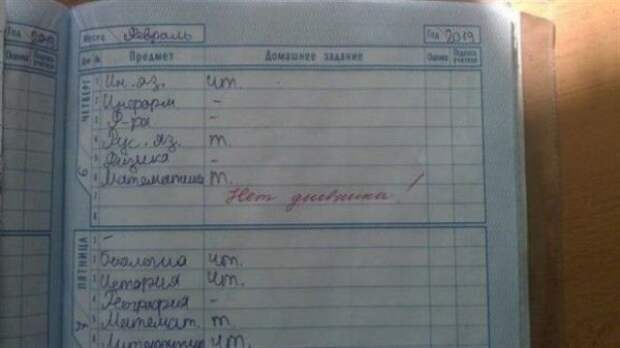 Год 2019
Месяц Февраль Год 2019
Оценка Подпись учителя Дн № Предмет Домашнее задание Оценка Подпись учителя
ЧЕТВЕРГ
1 Ин. яз. чт.
2 Информ -
3 Л-ра -
4 Рус. яз. т.
5 Физика -
6 Математика т.
7 Нет дневника!
8
ПЯТНИЦА
1 -
2 Биология чт.
3 История чт.
4 География -
5 Математ. т.
6 Литература чт.